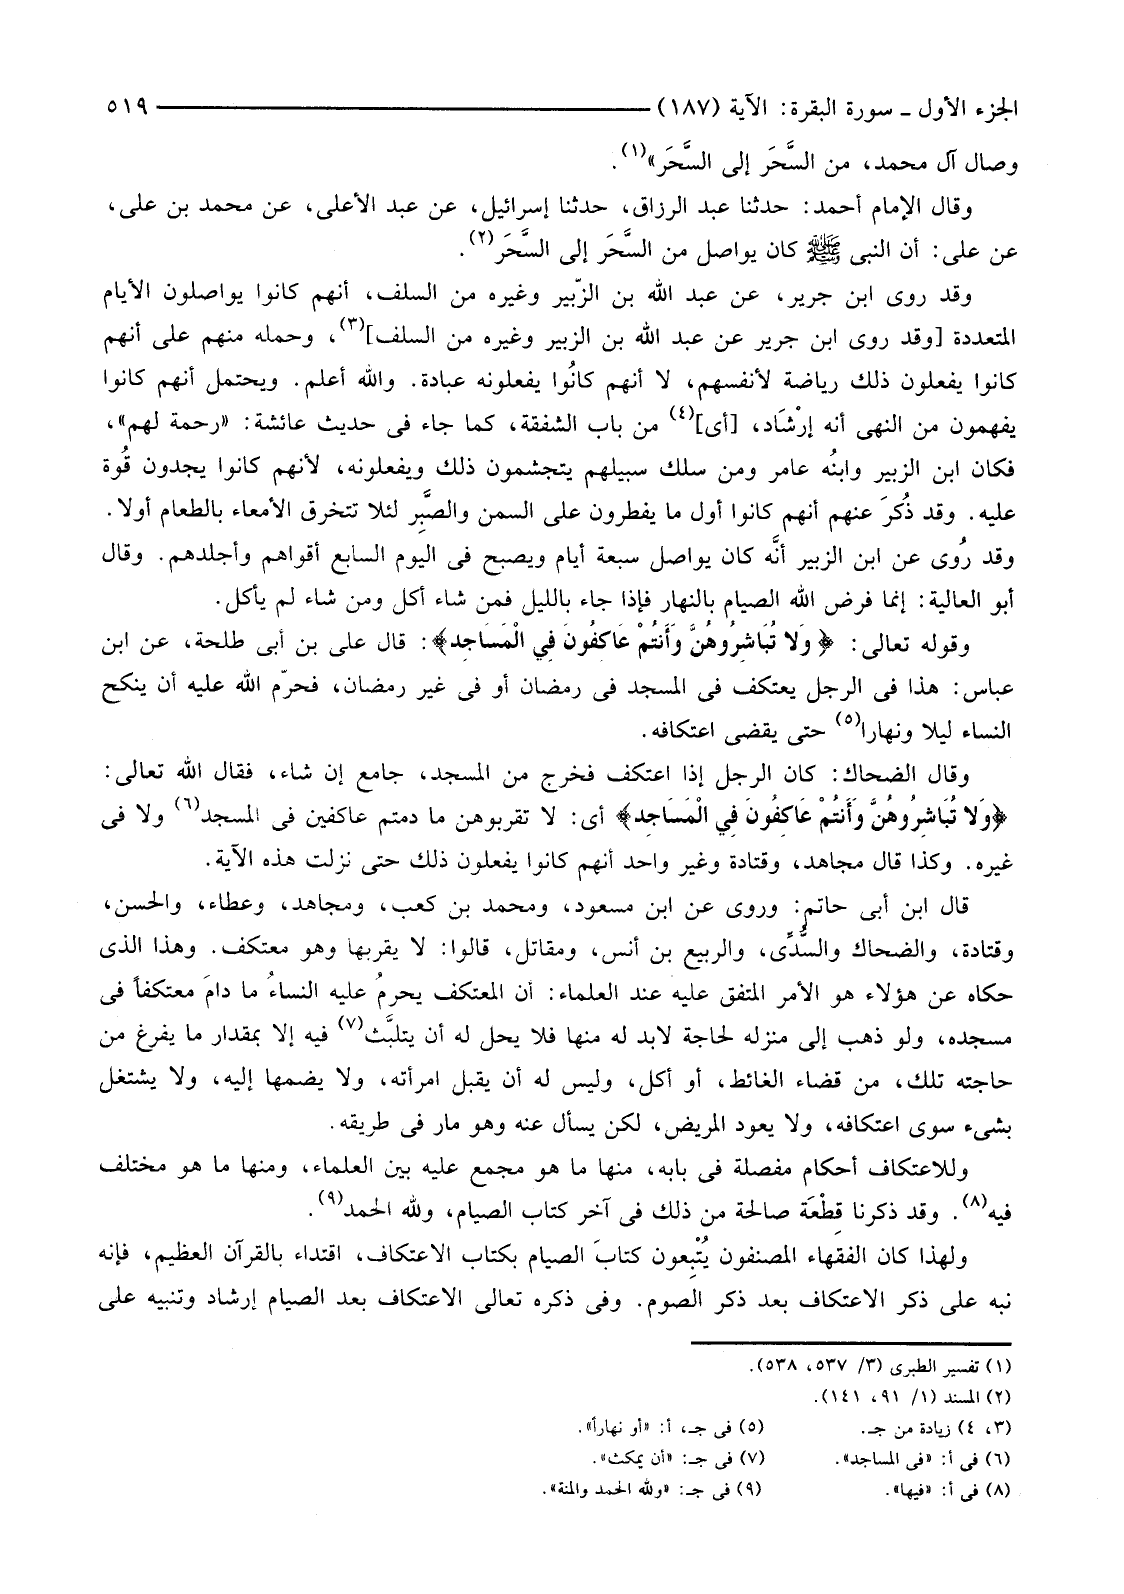 الجزء الأول ـ سورة البقرة: الآية (١٨٧) ٥١٩
وصال آل محمد، من السَّحَر إلى السَّحَر»(١).
وقال الإمام أحمد: حدثنا عبد الرزاق، حدثنا إسرائيل، عن عبد الأعلى، عن محمد بن على،
عن على: أن النبى ﷺ كان يواصل من السَّحَر إلى السَّحَر(٢).
وقد روى ابن جرير، عن عبد الله بن الزّبير وغيره من السلف، أنهم كانوا يواصلون الأيام
المتعددة [وقد روى ابن جرير عن عبد الله بن الزبير وغيره من السلف](٣)، وحمله منهم على أنهم
كانوا يفعلون ذلك رياضة لأنفسهم، لا أنهم كانُوا يفعلونه عبادة. والله أعلم. ويحتمل أنهم كانوا
يفهمون من النهى أنه إرْشَاد، [أى](٤) من باب الشفقة، كما جاء فى حديث عائشة: «رحمة لهم»،
فكان ابن الزبير وابنُه عامر ومن سلك سبيلهم يتجشمون ذلك ويفعلونه، لأنهم كانوا يجدون قُوة
عليه. وقد ذُكرَ عنهم أنهم كانوا أول ما يفطرون على السمن والصَّبِر لئلا تتخرق الأمعاء بالطعام أولا.
وقد رُوى عن ابن الزبير أنَّه كان يواصل سبعة أيام ويصبح فى اليوم السابع أقواهم وأجلدهم. وقال
أبو العالية: إنما فرض الله الصيام بالنهار فإذا جاء بالليل فمن شاء أكل ومن شاء لم يأكل.
وقوله تعالى: ﴿ وَلا تُبَاشِرُوهُنَّ وَأَنتُمْ عَاكِفُونَ فِي الْمَسَاجِدِ﴾: قال على بن أبى طلحة، عن ابن
عباس: هذا فى الرجل يعتكف فى المسجد فى رمضان أو فى غير رمضان، فحرّم الله عليه أن ينكح
النساء ليلا ونهارا(٥) حتى يقضى اعتكافه.
وقال الضحاك: كان الرجل إذا اعتكف فخرج من المسجد، جامع إن شاء، فقال الله تعالى:
﴿وَلا تُبَاشِرُوهُنَّ وَأَنتُمْ عَاكِفُونَ فِي الْمَسَاجِدِ﴾ أى: لا تقربوهن ما دمتم عاكفين فى المسجد(٦) ولا فى
غيره. وكذا قال مجاهد، وقتادة وغير واحد أنهم كانوا يفعلون ذلك حتى نزلت هذه الآية.
قال ابن أبى حاتم: وروى عن ابن مسعود، ومحمد بن كعب، ومجاهد، وعطاء، والحسن،
وقتادة، والضحاك والسُّدِّى، والربيع بن أنس، ومقاتل، قالوا: لا يقربها وهو معتكف. وهذا الذى
حكاه عن هؤلاء هو الأمر المتفق عليه عند العلماء: أن المعتكف يحرمُ عليه النساءُ ما دامَ معتكفاً فى
مسجده، ولو ذهب إلى منزله لحاجة لابد له منها فلا يحل له أن يتلبَّث(٧) فيه إلا بمقدار ما يفرغ من
حاجته تلك، من قضاء الغائط، أو أكل، وليس له أن يقبل امرأته، ولا يضمها إليه، ولا يشتغل
بشىء سوى اعتكافه، ولا يعود المريض، لكن يسأل عنه وهو مار فى طريقه.
وللاعتكاف أحكام مفصلة فى بابه، منها ما هو مجمع عليه بين العلماء، ومنها ما هو مختلف
فيه(٨). وقد ذكرنا قِطْعَة صالحة من ذلك فى آخر كتاب الصيام، ولله الحمد(٩).
ولهذا كان الفقهاء المصنفون يُتْبِعون كتابَ الصيام بكتاب الاعتكاف، اقتداء بالقرآن العظيم، فإنه
نبه على ذكر الاعتكاف بعد ذكر الصوم. وفى ذكره تعالى الاعتكاف بعد الصيام إرشاد وتنبيه على
(١) تفسير الطبرى (٣/ ٥٣٧، ٥٣٨).
(٢) المسند (١/ ٩١، ١٤١).
(٣، ٤) زيادة من جـ. (٥) فى جـ، أ: «أو نهاراً».
(٦) فى أ: «فى المساجد». (٧) فى جـ: «أن يمكث».
(٨) فى أ: «فيها». (٩) فى جـ: «ولله الحمد والمنة».